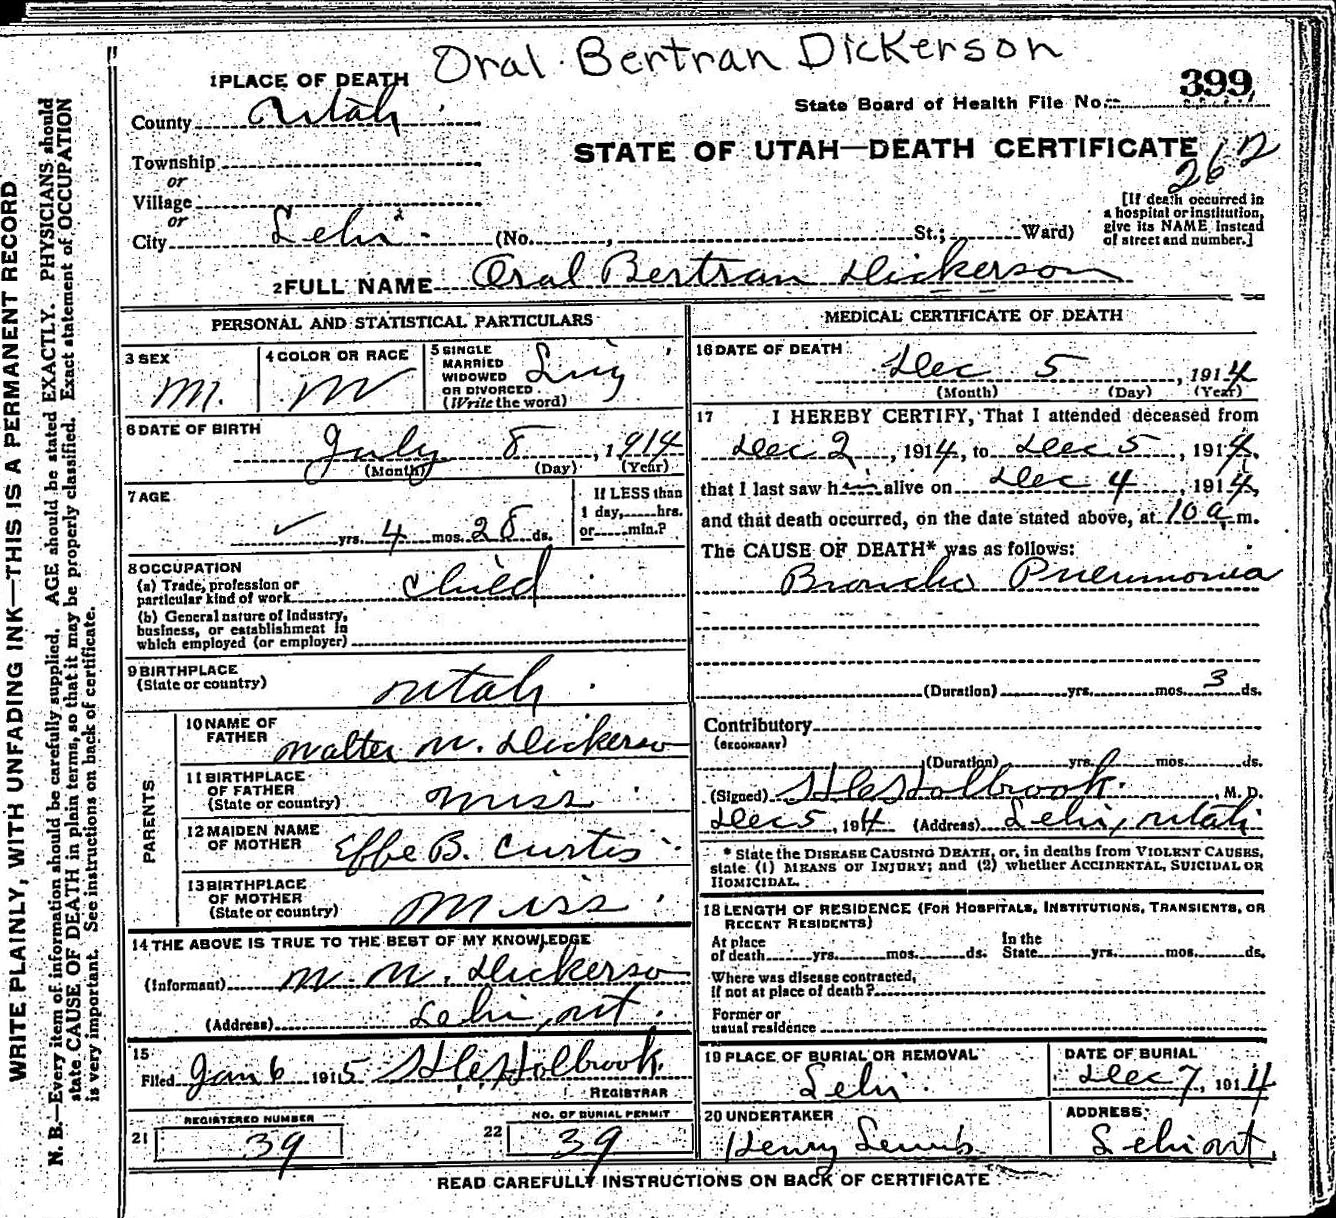 Oral Bertran Dickerson
1 PLACE OF DEATH
399
State Board of Health File No.
County Utah
STATE OF UTAH—DEATH CERTIFICATE
Township
or
Village
or
City Lehi (No. , St.; Ward)
[If death occurred in
a hospital or institution,
give its NAME instead
of street and number.]
2 FULL NAME Oral Bertran Dickerson
PERSONAL AND STATISTICAL PARTICULARS
3 SEX
M.
4 COLOR OR RACE
W
5 SINGLE
MARRIED
WIDOWED
OR DIVORCED
(Write the word)
Sing
6 DATE OF BIRTH
July 8, 1914
(Month) (Day) (Year)
7 AGE
✓ yrs. 4 mos. 28 ds.
If LESS than
1 day, hrs.
or min.?
8 OCCUPATION
(a) Trade, profession or
particular kind of work Child
(b) General nature of industry,
business, or establishment in
which employed (or employer)
9 BIRTHPLACE
(State or country)
Utah
PARENTS
10 NAME OF
FATHER
Walter W. Dickerso
11 BIRTHPLACE
OF FATHER
(State or country)
Miss
12 MAIDEN NAME
OF MOTHER
Effe B. Curtis
13 BIRTHPLACE
OF MOTHER
(State or country)
Miss
14 THE ABOVE IS TRUE TO THE BEST OF MY KNOWLEDGE
(Informant) W. W. Dickerso
(Address) Lehi, Ut.
15
Filed Jan 6 1915 Holbrook.
REGISTRAR
REGISTERED NUMBER
21 39
NO. OF BURIAL PERMIT
22 39
MEDICAL CERTIFICATE OF DEATH
16 DATE OF DEATH
Dec 5, 1914
(Month) (Day) (Year)
17 I HEREBY CERTIFY, That I attended deceased from
Dec 2, 1914, to Dec 5, 1914,
that I last saw him alive on Dec 4, 1914,
and that death occurred, on the date stated above, at 10 a. m.
The CAUSE OF DEATH* was as follows:
Broncho Pneumonia
(Duration) yrs. mos. 3 ds.
Contributory
(SECONDARY)
(Duration) yrs. mos. ds.
(Signed) Holbrook. , M. D.
Dec 5, 1914 (Address) Lehi, Utah
* State the DISEASE CAUSING DEATH, or, in deaths from VIOLENT CAUSES,
state (1) MEANS OF INJURY; and (2) whether ACCIDENTAL, SUICIDAL OR
HOMICIDAL.
18 LENGTH OF RESIDENCE (FOR HOSPITALS, INSTITUTIONS, TRANSIENTS, OR
RECENT RESIDENTS)
At place
of death yrs. mos. ds.
In the
State yrs. mos. ds.
Where was disease contracted,
if not at place of death?
Former or
usual residence
19 PLACE OF BURIAL OR REMOVAL
Lehi
DATE OF BURIAL
Dec 7, 1914
20 UNDERTAKER
Henry Lewis
ADDRESS
Lehi Ut
READ CAREFULLY INSTRUCTIONS ON BACK OF CERTIFICATE
WRITE PLAINLY, WITH UNFADING INK—THIS IS A PERMANENT RECORD
N. B.—Every item of information should be carefully supplied. AGE should be stated EXACTLY. PHYSICIANS should
state CAUSE OF DEATH in plain terms, so that it may be properly classified. Exact statement of OCCUPATION
is very important. See instructions on back of certificate.